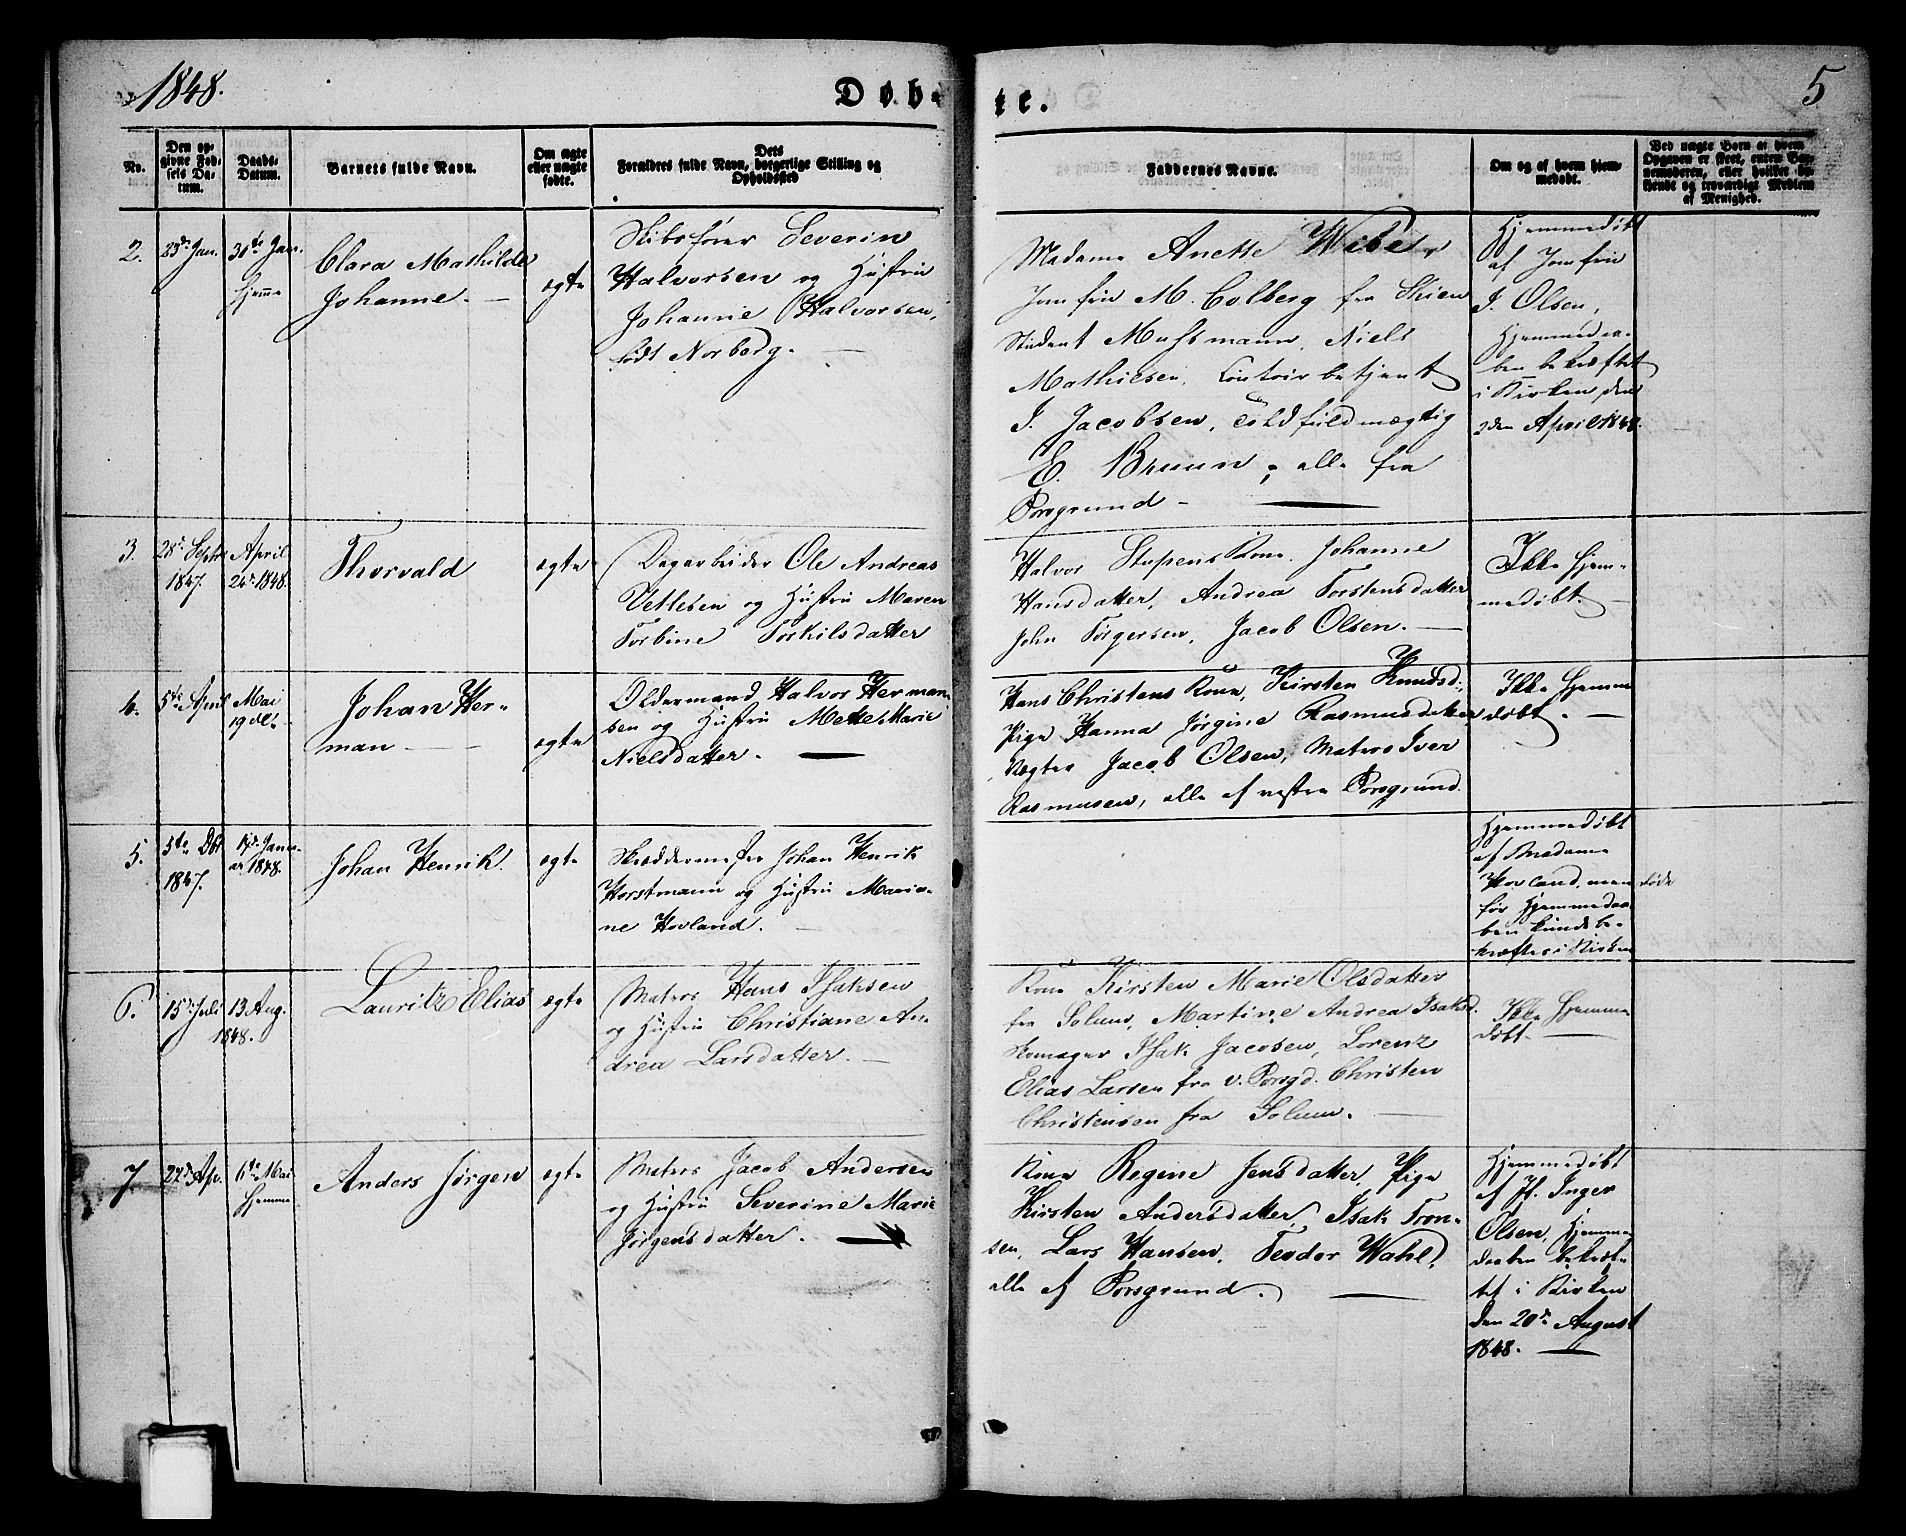 1848.
Døb-
te.
5
No.
Den op-
givne Fød-
sels Da-
tum.
Daabs-
Datum.
Barnets fulde Navn.
Om ægte
eller uægte
fødte.
Dets
Forældres fulde Navn, borgerlige Stilling og
Opholdssted
Faddernes Navne.
Om og af hvem hjem-
medøbt.
Ved uægte Børn at hvem
Opgaven er skeet, enten Bar-
nemoderen, eller hvilket be-
kjendt og troværdigt Medlem
af Menighed.
2.
23de Jan.
31te Jan.
hjemme
Clara Mathilde
Johanne.
ægte
Skibsfører Severin
Halvorsen og Hustru
Johanne Halvorsen,
født Norberg.
Madame Anette Wibe,
Jomfru M. Colberg fra Skien
Student Mussmann, Niels
Mathiesen, Contoirbetjent
J. Jacobsen, Toldfuldmægtig
E. Bruun, alle fra
Porsgrund
Hjemmedøbt
af Jomfru
J. Olsen,
Hjemmedaa-
ben bekræftet
i Kirken den
2den April 1848.
3.
28de Septr
1847.
April
24de 1848.
Thorvald
ægte
Dagarbeider Ole Andreas
Vetlesen og Hustru Maren
Torbine Torkilsdatter
Halvor Stupens Kone Johanne
Hansdatter, Andrea Torstensdatter
John Törgersen, Jacob Olsen.
Ikke Hjem-
medøbt.
4.
5te April
Mai
19de
Johan Her-
man
ægte
Oldermand Halvor Herman-
sen og Hustru Mette Marie
Nielsdatter.
Hans Christens Kone, Kirsten Knudsd:,
Pige Hanna Jørgine Rasmusdatter
Vægter Jacob Olsen, Matros Iver
Rasmusen, alle af vestre Porsgrund.
Ikke Hjemme
døbt.
5.
5te Dbr
1847.
Janu-
ar 1848.
Johan Henrik.
ægte
Skræddermester Johan Henrik
Horstmann og Hustru Maria-
ne Hovland.
Hjemmedøbt
af Madame
Hovland, men døde
før Hjemmedaa-
ben kunde be-
kræftes i Kirken
6.
15de Juli
13 Aug.
1848.
Lauritz Elias
ægte
Matros Hans Isaksen
og Hustru Christiane An-
drea Larsdatter.
Kone Kirsten Marie Olsdatter
fra Solum, Martine Andrea Isaksd.
Skomager Isak Jacosen, Lorenz
Elias Larsen fra v. Porsgd. Christen
Christensen fra Solum.
Ikke Hjemme
døbt.
7.
Ap.
6te Mai
Hjemme
Anders Jörgen
ægte
Matros Jacob Andersen
og Hustru Severine Marie
Jörgensdatter.
Kone Regine Jensdatter, Pige
Kirsten Andersdatter, Isak Tron-
sen, Lars Hansen, Teodor Wahl,
alle af Porsgrund.
Hjemmedøbt
af Jf. Inger
Olsen, Hjemme
daaben bekræf-
tet i Kirken
den 20de August
1848.